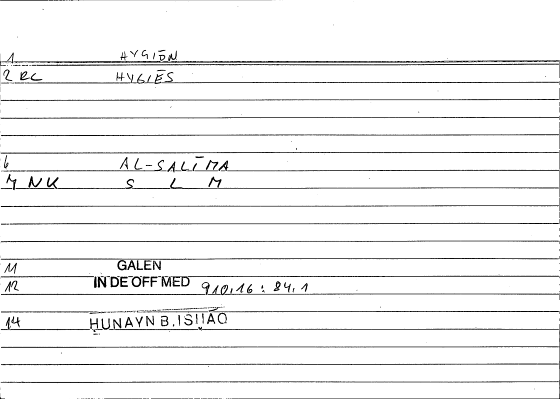 1 HYGIŌN
2 RC HYGIĒS
6 AL-SALĪMA
7 NK S L M
11 GALEN
12 IN DE OFF MED 910,16 : 84,1
14 ḤUNAYN B. ISḤĀQ